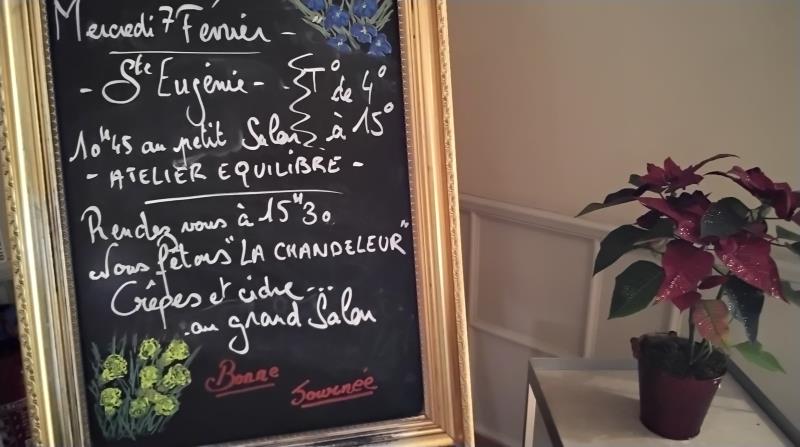 Mercredi 7 Février -
- Ste Eugénie -
T° de 4°
à 15°
10H45 au petit Salon
- ATELIER EQUILIBRE -
Rendez vous à 15H30
Nous fêtons "LA CHANDELEUR"
Crêpes et cidre...
.au grand Salon
Bonne Journée